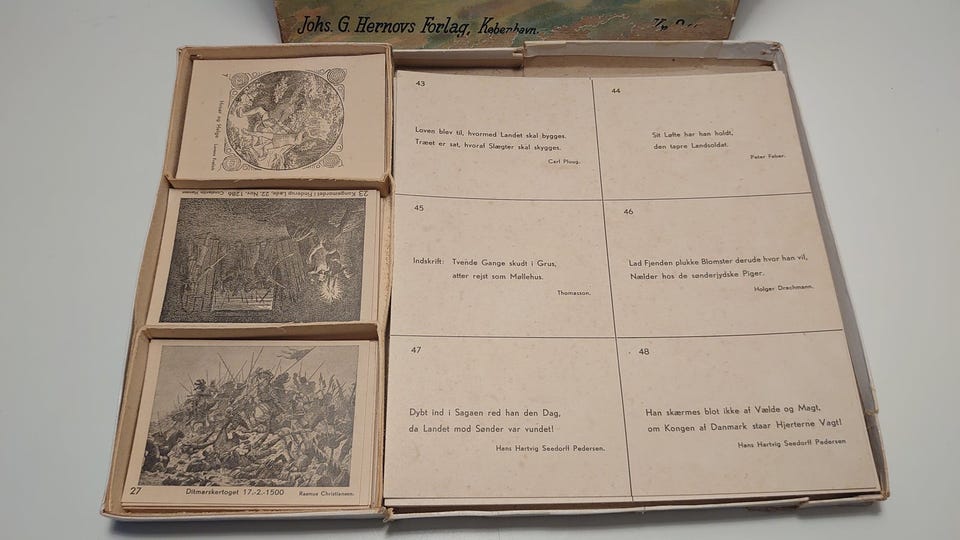 Johs. G. Hernovs Forlag, København.
7
Hroar og Helge
23 Kongemordet i Finderup Lade, 22. Nov. 1286
27
Ditmarskertoget 17.-2.-1500
Rasmus Christiansen.
43
Loven blev til, hvormed Landet skal bygges.
Træet er sat, hvoraf Slægter skal skygges.
Carl Ploug.
44
Sit Løfte har han holdt,
den tapre Landsoldat.
Peter Faber.
45
Indskrift: Tvende Gange skudt i Grus,
atter rejst som Møllehus.
Thomasson.
46
Lad Fjenden plukke Blomster derude hvor han vil,
Nælder hos de sønderjydske Piger.
Holger Drachmann.
47
Dybt ind i Sagaen red han den Dag,
da Landet mod Sønder var vundet!
Hans Hartvig Seedorff Pedersen.
48
Han skærmes blot ikke af Vælde og Magt,
om Kongen af Danmark staar Hjerterne Vagt!
Hans Hartvig Seedorff Pedersen